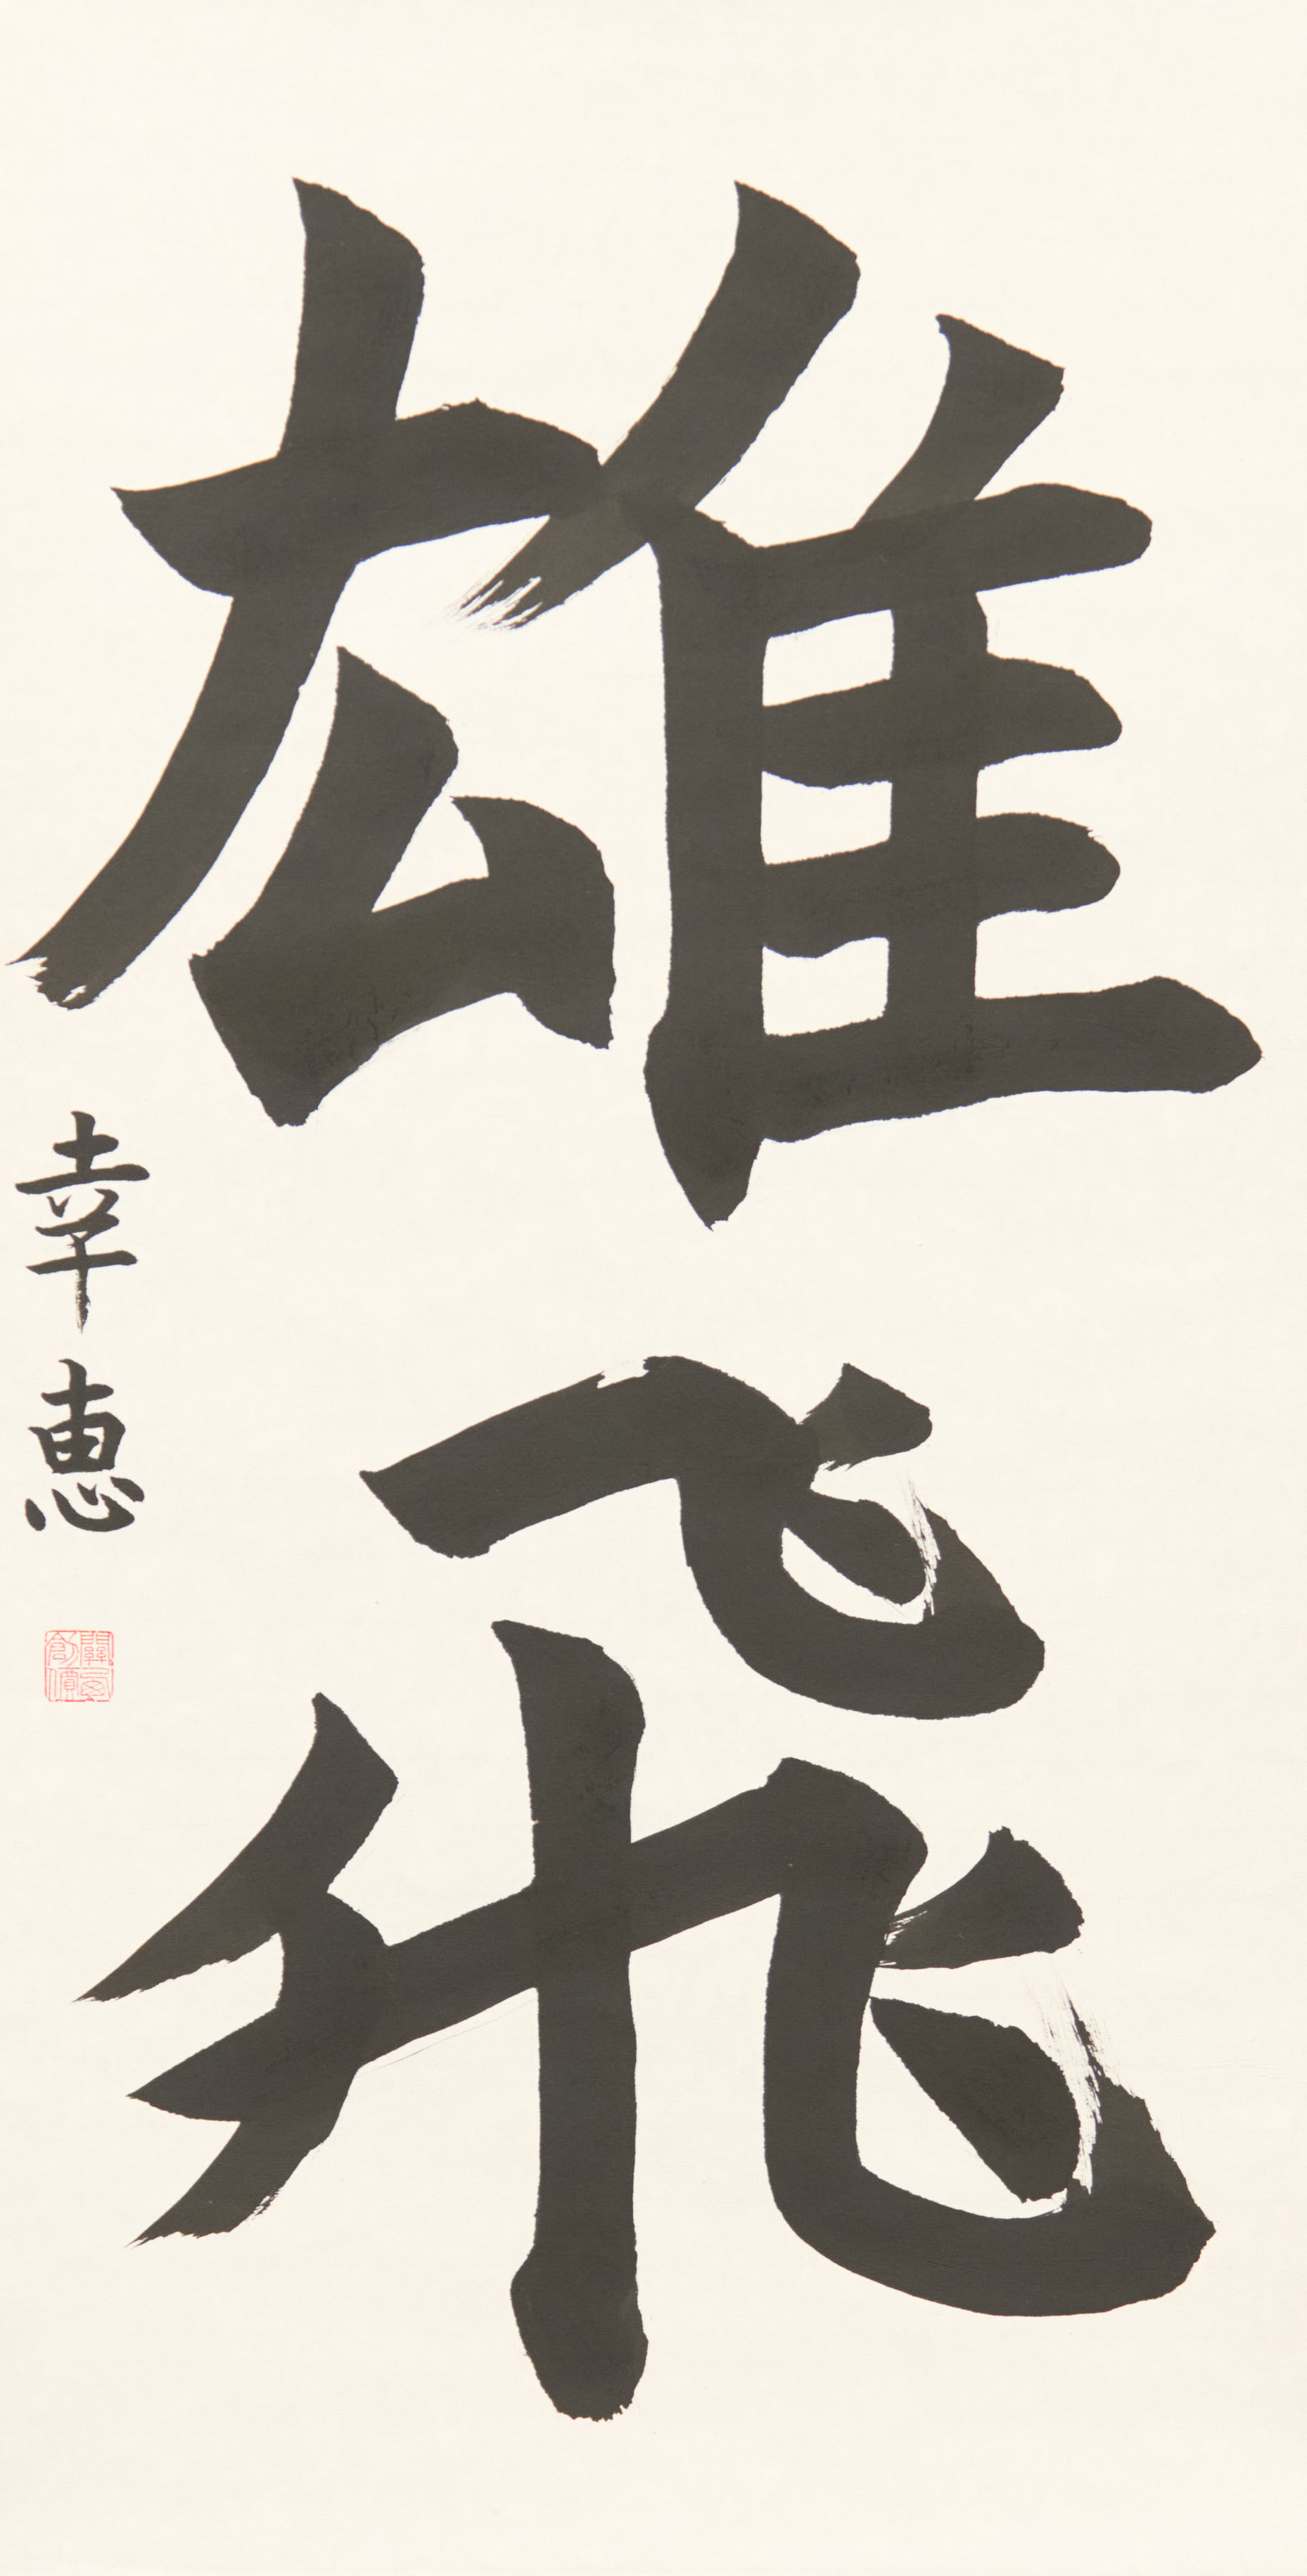 雄飛
幸恵